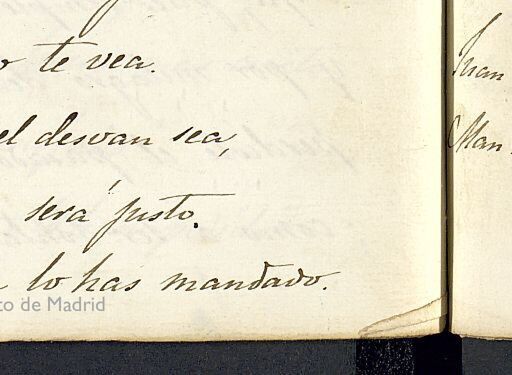 o te vea.
el desvan sea,
será justo.
lo has mandado.
to de Madrid
Juan
Man